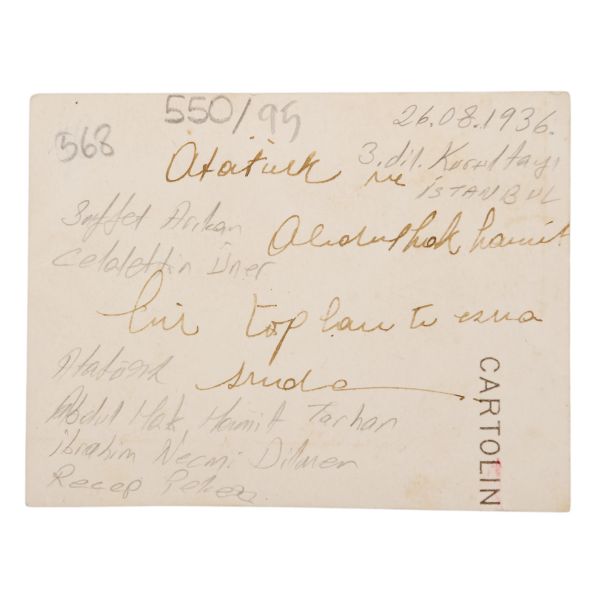 550/95
26.08.1936.
568
Atatürk ve
3. dil. Kurultayı
İSTANBUL
Saffet Arıkan
Abdulhak hamit
Celalettin Üner
bir toplantı esna
sında
Atatürk
Abdul Hak Hamit Tarhan
İbrahim Necmi Dilmen
Recep Peker
CARTOLIN